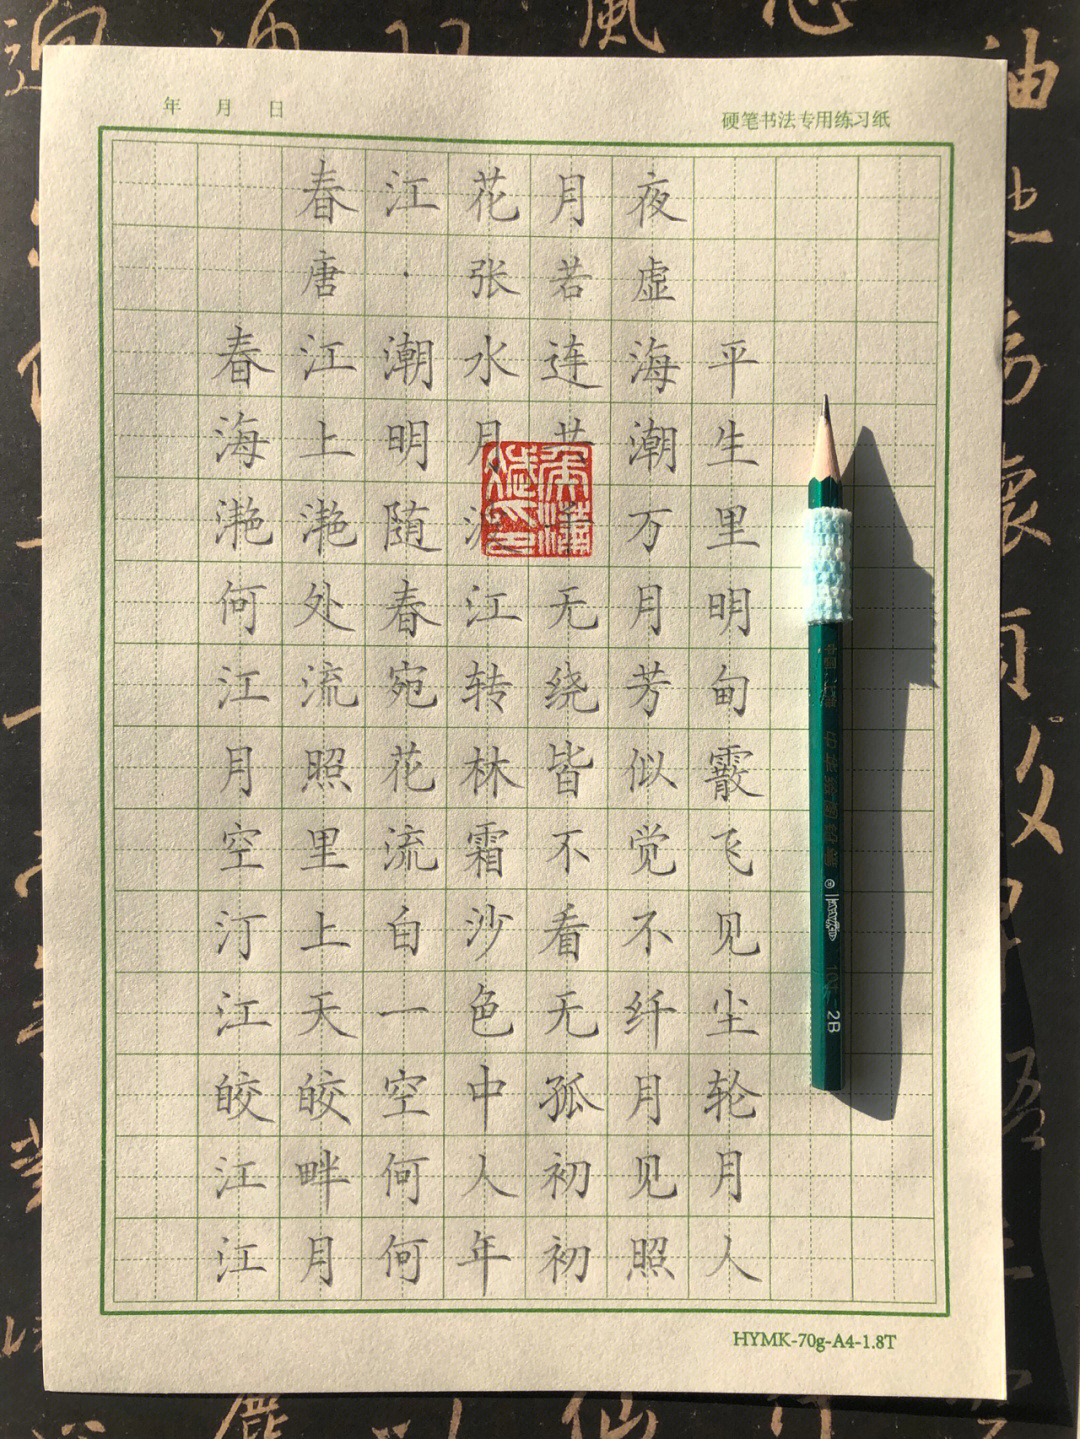 年 月 日
硬笔书法专用练习纸
春江花月夜
唐·张若虚
春江潮水连海平
海上明月共潮生
滟滟随波千里万里
何处春江无月明
江流宛转绕芳甸
月照花林皆似霰
空里流霜不觉飞
汀上白沙看不见
江天一色无纤尘
皎皎空中孤月轮
江畔何人初见月
江月何年初照人
HYMK-70g-A4-1.8T
中国
2B